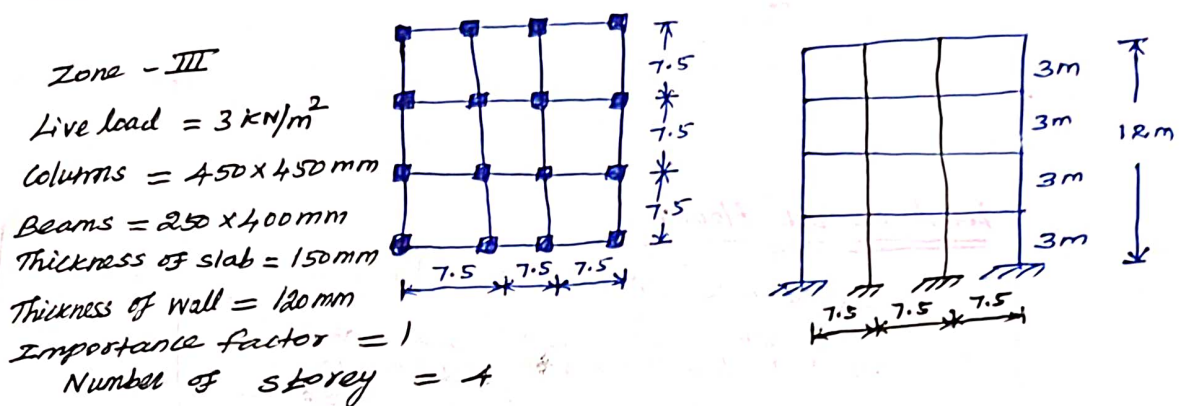 Zone - III
Live load = 3 KN/m²
Columns = 450 x 450 mm
Beams = 250 x 400 mm
Thickness of slab = 150 mm
Thickness of wall = 120 mm
Importance factor = 1
Number of storey = 4
7.5
7.5
7.5
7.5 7.5 7.5
3m
3m
3m
3m
12m
7.5 7.5 7.5